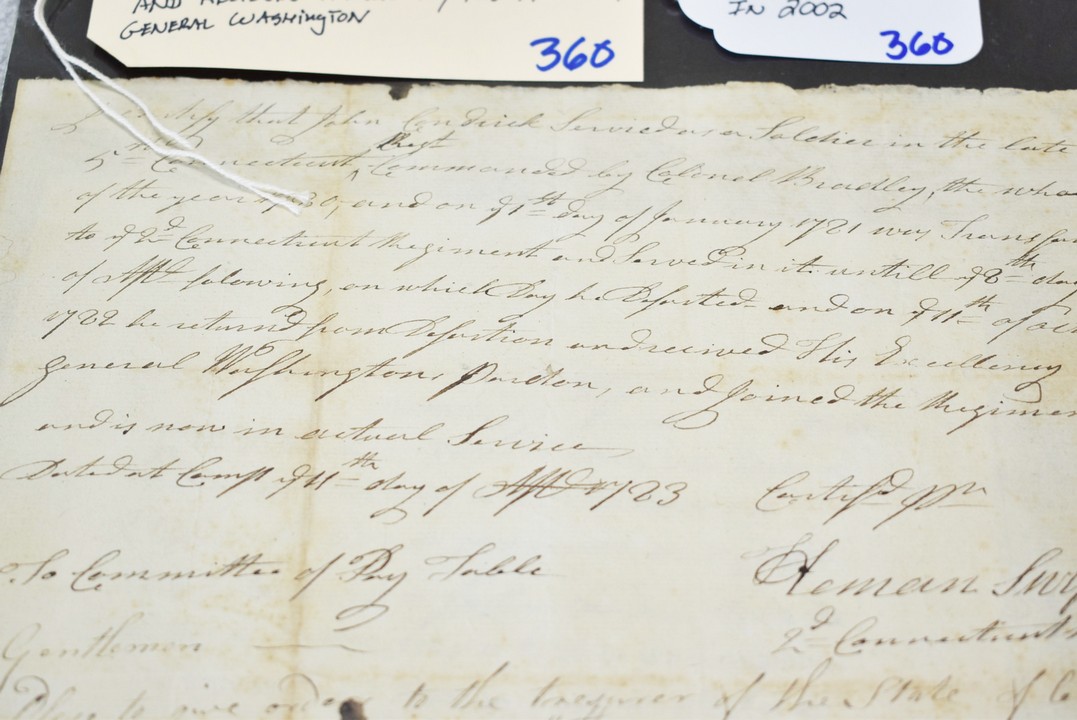 GENERAL WASHINGTON
360
IN 2002
360
that John Condrick Serviced as a Soldier in the late
5th Connecticut Regt Commanded by Colonel Bradley, the who
of the year and on ye 1st day of January 1781 was Transfer
to ye 2d Connecticut Regiment and Served in it untill ye 8th day
of folowing, on which Day he Deserted and on ye 11th of
1782 he return'd from Desertion and received His Excellency
general Washingtons Pardon, and Joined the Regimen
and is now in actual Service
Dated at Camp ye 11th day of 1783 Certifd pr
To Committee of Pay Table Heman Swi
2d Connecticut
Gentlemen
to give order to the treasurer of the State of